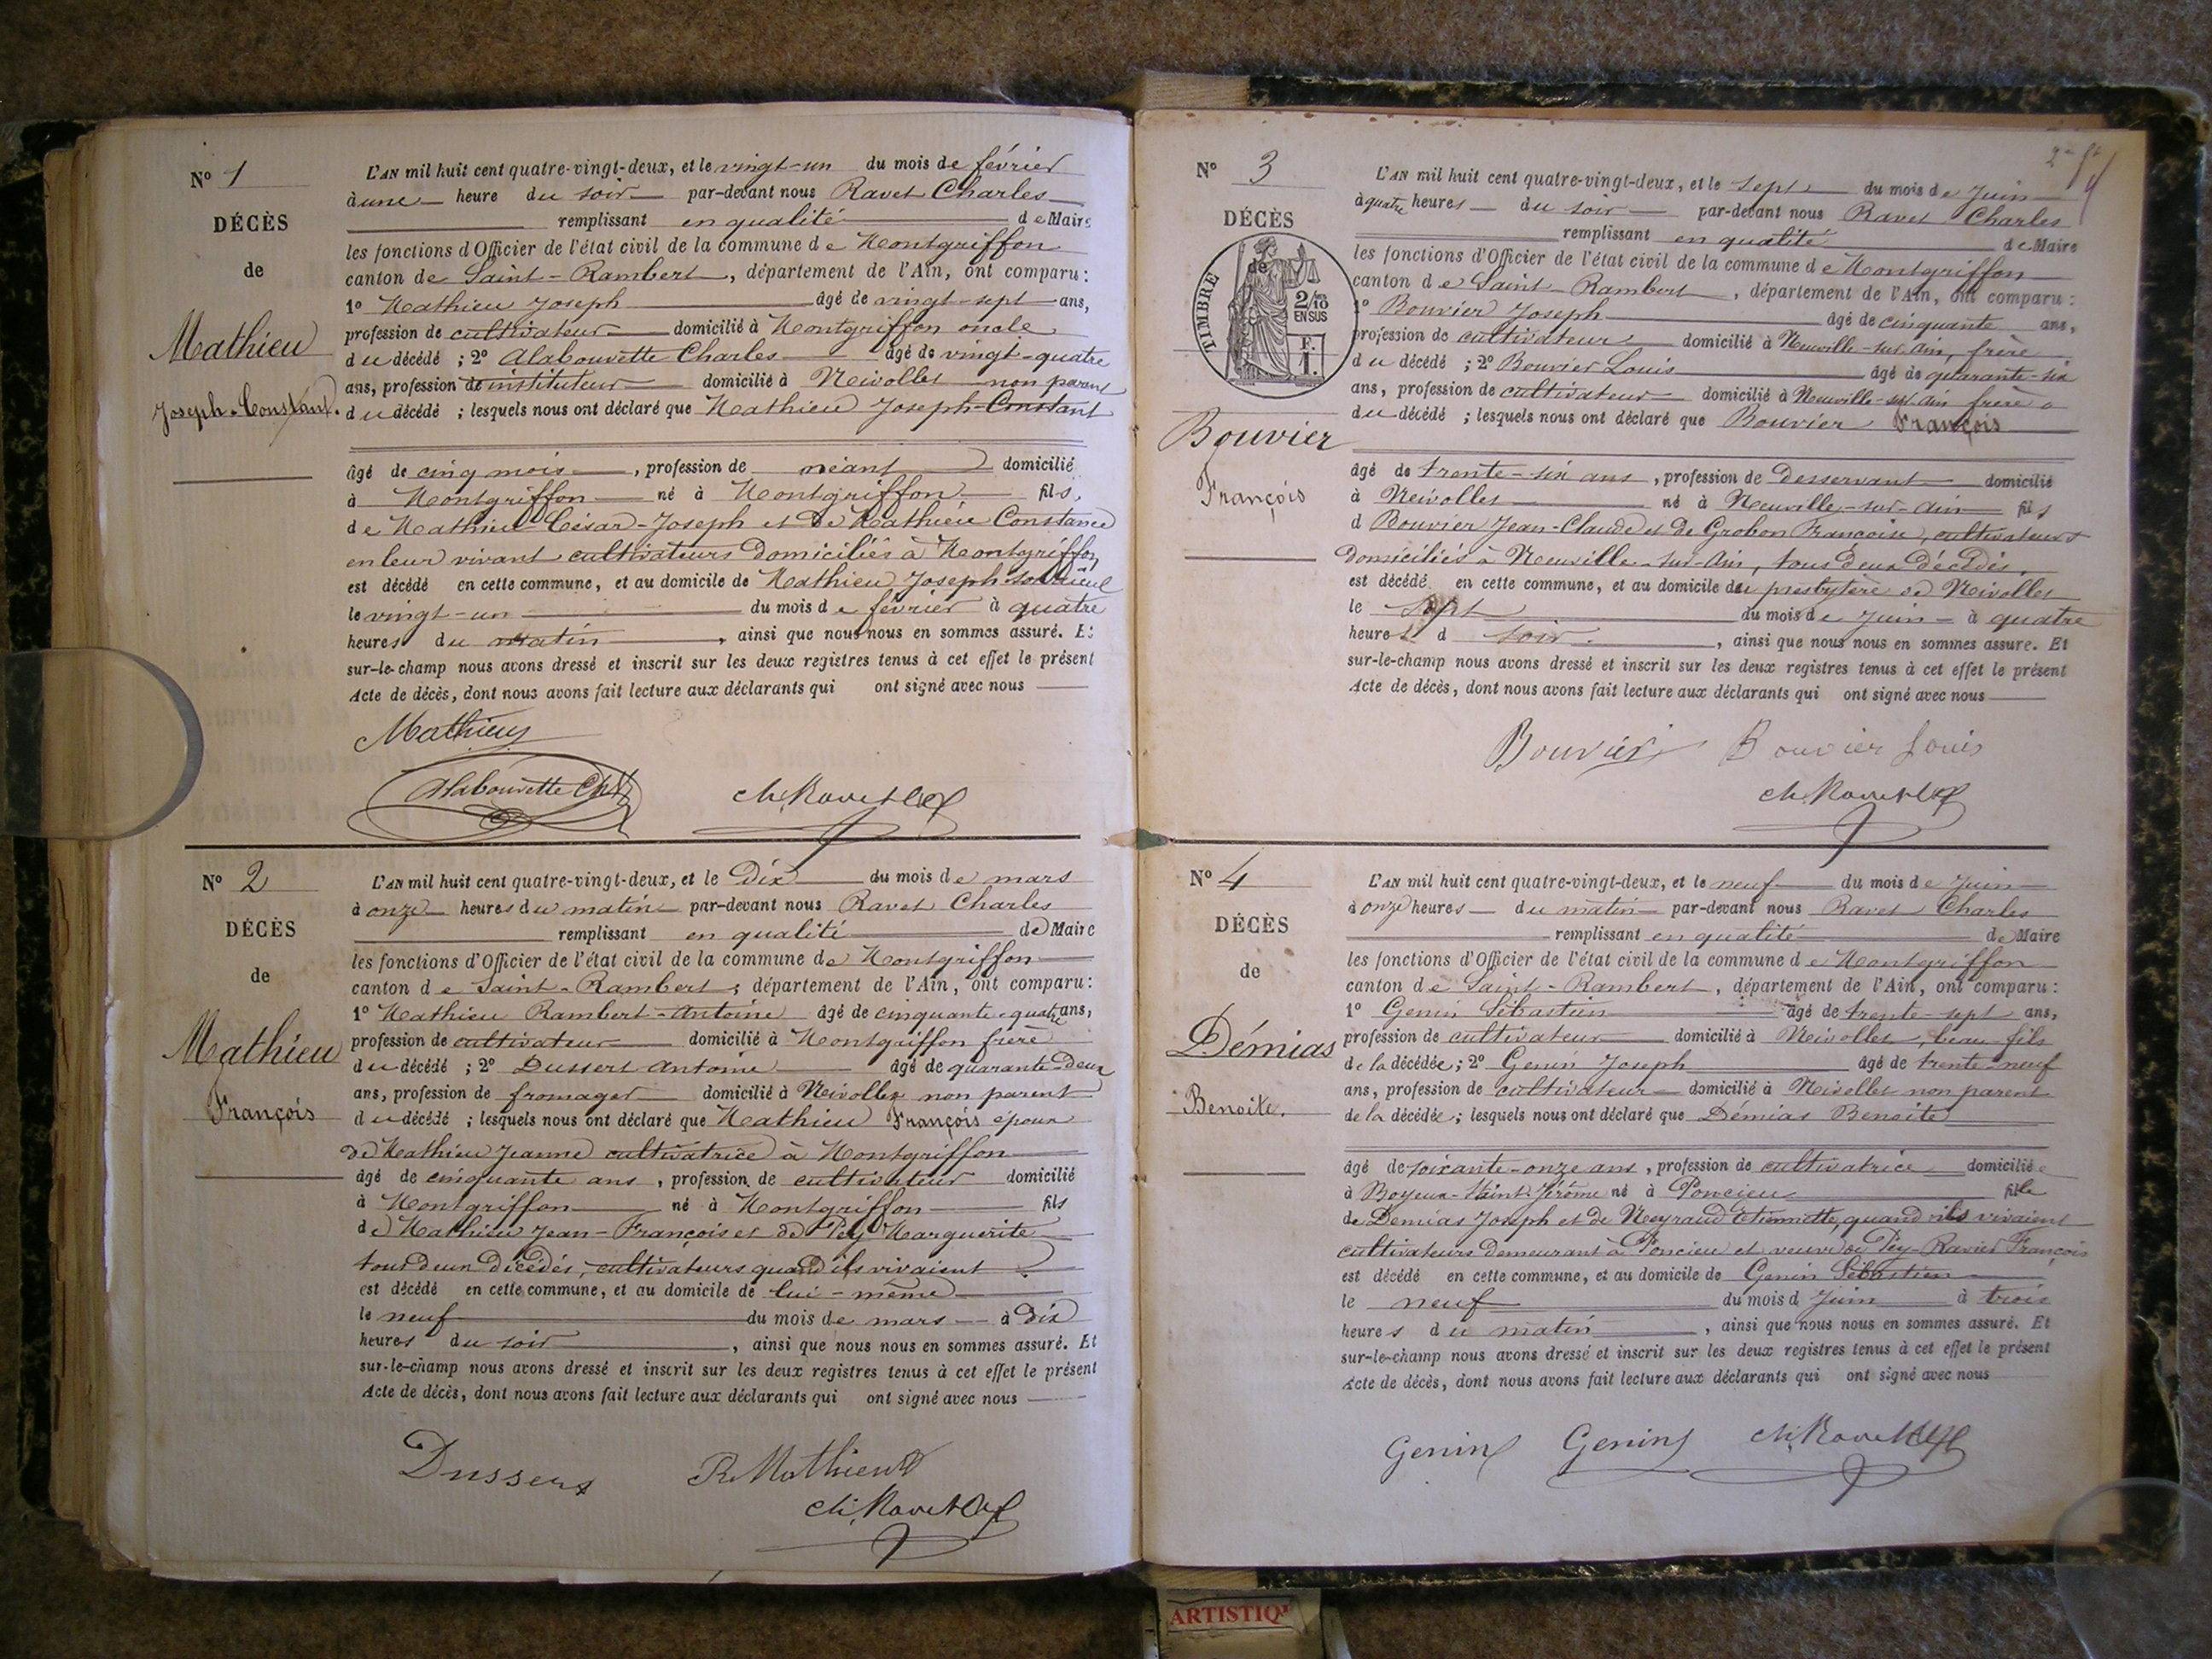 N° 1
DÉCÈS
de
Mathieu
Joseph-Constant.
L'AN mil huit cent quatre-vingt-deux, et le vingt-un du mois de février
à une heure du soir par-devant nous Ravet Charles
remplissant en qualité de Maire
les fonctions d'Officier de l'état civil de la commune de Montgriffon
canton de Saint-Rambert, département de l'Ain, ont comparu:
1° Mathieu Joseph âgé de vingt-sept ans,
profession de cultivateur domicilié à Montgriffon oncle
du décédé ; 2° Alabouvette Charles âgé de vingt-quatre
ans, profession de instituteur domicilié à Neivolles non parent
du décédé ; lesquels nous ont déclaré que Mathieu Joseph-Constant
âgé de cinq mois, profession de néant domicilié
à Montgriffon né à Montgriffon fils,
de Mathieu César-Joseph et de Mathieu Constance
en leur vivant cultivateurs domiciliés à Montgriffon
est décédé en cette commune, et au domicile de Mathieu Joseph
le vingt-un du mois de février à quatre
heures du matin, ainsi que nous nous en sommes assuré. Et
sur-le-champ nous avons dressé et inscrit sur les deux registres tenus à cet effet le présent
Acte de décès, dont nous avons fait lecture aux déclarants qui ont signé avec nous
Mathieu
Alabouvette Ch
ch. Ravet
N° 2
DÉCÈS
de
Mathieu
François
L'AN mil huit cent quatre-vingt-deux, et le Dix du mois de mars
à onze heures du matin par-devant nous Ravet Charles
remplissant en qualité de Maire
les fonctions d'Officier de l'état civil de la commune de Montgriffon
canton de Saint-Rambert, département de l'Ain, ont comparu:
1° Mathieu Rambert-Antoine âgé de cinquante-quatre ans,
profession de cultivateur domicilié à Montgriffon frère
du décédé ; 2° Dussert Antoine âgé de quarante-Deux
ans, profession de fromager domicilié à Neivolles non parent
du décédé ; lesquels nous ont déclaré que Mathieu François époux
de Mathieu Jeanne cultivatrice à Montgriffon
âgé de cinquante ans, profession de cultivateur domicilié
à Montgriffon né à Montgriffon fils
de Mathieu Jean-François et de Pey Marguerite
tous deux Décédés, cultivateurs quand ils vivaient
est décédé en cette commune, et au domicile de lui-même
le neuf du mois de mars à Dix
heures du soir, ainsi que nous nous en sommes assuré. Et
sur-le-champ nous avons dressé et inscrit sur les deux registres tenus à cet effet le présent
Acte de décès, dont nous avons fait lecture aux déclarants qui ont signé avec nous
Dussert R Mathieu
ch. Ravet
N° 3
DÉCÈS
de
TIMBRE
2/10
EN SUS
F.
1.
Bouvier
François
L'AN mil huit cent quatre-vingt-deux, et le sept du mois de Juin
à quatre heures du soir par-devant nous Ravet Charles
remplissant en qualité de Maire
les fonctions d'Officier de l'état civil de la commune de Montgriffon
canton de Saint-Rambert, département de l'Ain, ont comparu:
1° Bouvier Joseph âgé de cinquante ans,
profession de cultivateur domicilié à Neuville-sur-Ain, frère
du décédé ; 2° Bouvier Louis âgé de quarante-six
ans, profession de cultivateur domicilié à Neuville-sur-Ain frère
du décédé ; lesquels nous ont déclaré que Bouvier François
âgé de trente-six ans, profession de Desservant domicilié
à Neivolles né à Neuville-sur-Ain fils
d Bouvier Jean-Claude et de Grobon Françoise, cultivateurs
domiciliés à Neuville-sur-Ain, tous deux décédés.
est décédé en cette commune, et au domicile du presbytère de Neivolles
le sept du mois de Juin à quatre
heures d soir, ainsi que nous nous en sommes assuré. Et
sur-le-champ nous avons dressé et inscrit sur les deux registres tenus à cet effet le présent
Acte de décès, dont nous avons fait lecture aux déclarants qui ont signé avec nous
Bouvier Bouvier Louis
ch. Ravet
N° 4
DÉCÈS
de
Démias
Benoite.
L'AN mil huit cent quatre-vingt-deux, et le neuf du mois de Juin
à onze heures du matin par-devant nous Ravet Charles
remplissant en qualité de Maire
les fonctions d'Officier de l'état civil de la commune de Montgriffon
canton de Saint-Rambert, département de l'Ain, ont comparu:
1° Genin Sébastien âgé de trente-sept ans,
profession de cultivateur domicilié à Neivolles, beau-fils
de la décédée ; 2° Genin Joseph âgé de trente-neuf
ans, profession de cultivateur domicilié à Neivolles non parent
de la décédée ; lesquels nous ont déclaré que Démias Benoite
âgé de soixante-onze ans, profession de cultivatrice domiciliée
à Boyeux-Saint-Jérôme né à Poncieux fille
de Démias Joseph et de Neyraud Etiennette, quand ils vivaient
cultivateurs demeurant à Poncieu et veuve de Pey-Ravier François
est décédé en cette commune, et au domicile de Genin Sébastien
le neuf du mois d Juin à trois
heures du matin, ainsi que nous nous en sommes assuré. Et
sur-le-champ nous avons dressé et inscrit sur les deux registres tenus à cet effet le présent
Acte de décès, dont nous avons fait lecture aux déclarants qui ont signé avec nous
Genin Genin ch. Ravet
ARTISTIQ